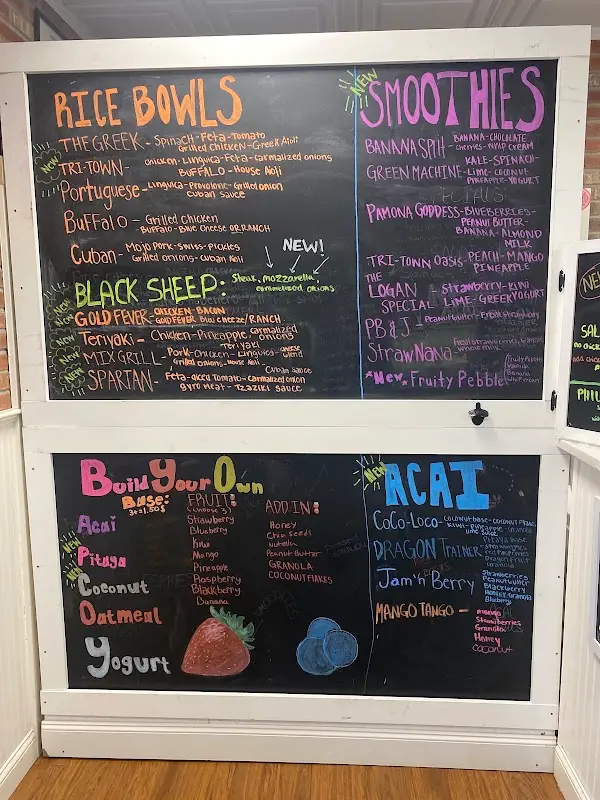 RICE BOWLS
THE GREEK - Spinach - Feta - Tomato
Grilled Chicken - Greek Aioli
New
TRI-TOWN - Chicken - Linguica - Feta - Carmalized onions
BUFFALO - House Aioli
Portuguese - Linguica - Provolone - Grilled onion
Cuban Sauce
Buffalo - Grilled Chicken
Buffalo - Blue Cheese OR RANCH
Cuban - Mojo Pork - Swiss - Pickles
Grilled onions - Cuban Aioli
NEW!
BLACK SHEEP: Steak, mozzarella,
caramelized onions
New
GOLD FEVER - CHICKEN - BACON
GOLD FEVER bleu cheese/RANCH
New
Teriyaki - Chicken - Pineapple, carmalized onions
Teriyaki
New
MIX GRILL - Pork - Chicken - Linguica - cheese blend
Grilled onions - House Aioli
Cuban Sauce
New
SPARTAN - Feta - diced Tomato - Carmalized onion
gyro meat - Tzaziki sauce
NEW
SMOOTHIES
BANANA SPLIT - BANANA - CHOCLATE
cherries - WHIP CREAM
GREEN MACHINE - KALE - SPINACH
- Lime - COCONUT
PINEAPPLE - YOGURT
PAMONA GODDESS - BLUEBERRIES -
PEANUT BUTTER -
BANANA - ALMOND
MILK
TRI-TOWN Oasis - PEACH - MANGO
PINEAPPLE
THE
LOGAN - strawberry - Kiwi
SPECIAL - Lime - GREEK YOGURT
PB & J - Peanut butter -
StrawNana -
*New* Fruity Pebble
Fruity Pebbles
Vanilla
Banana
Whip Cream
Build Your Own
Base:
3+ = 1.50$
Acai
New
Pitaya
New
Coconut
Oatmeal
Yogurt
FRUIT:
(choose 3)
Strawberry
Blueberry
Kiwi
Mango
Pineapple
Raspberry
Blackberry
Banana
ADD IN:
Honey
Chia Seeds
nutella
Peanut Butter
GRANOLA
COCONUT FLAKES
NEW
ACAI
CoCo-Loco - Coconut base - coconut flakes
Kiwi - pineapple - Granola
Lime Juice
DRAGON Trainer
Pitaya Base
strawberries
Dragon Fruit
Granola
Jam'n Berry
Strawberries
Peanut butter
Blackberry
Honey - Granola
Blueberry
MANGO TANGO -
mango
Strawberries
Granola
Honey
coconut
NEW
SAL
PHIL